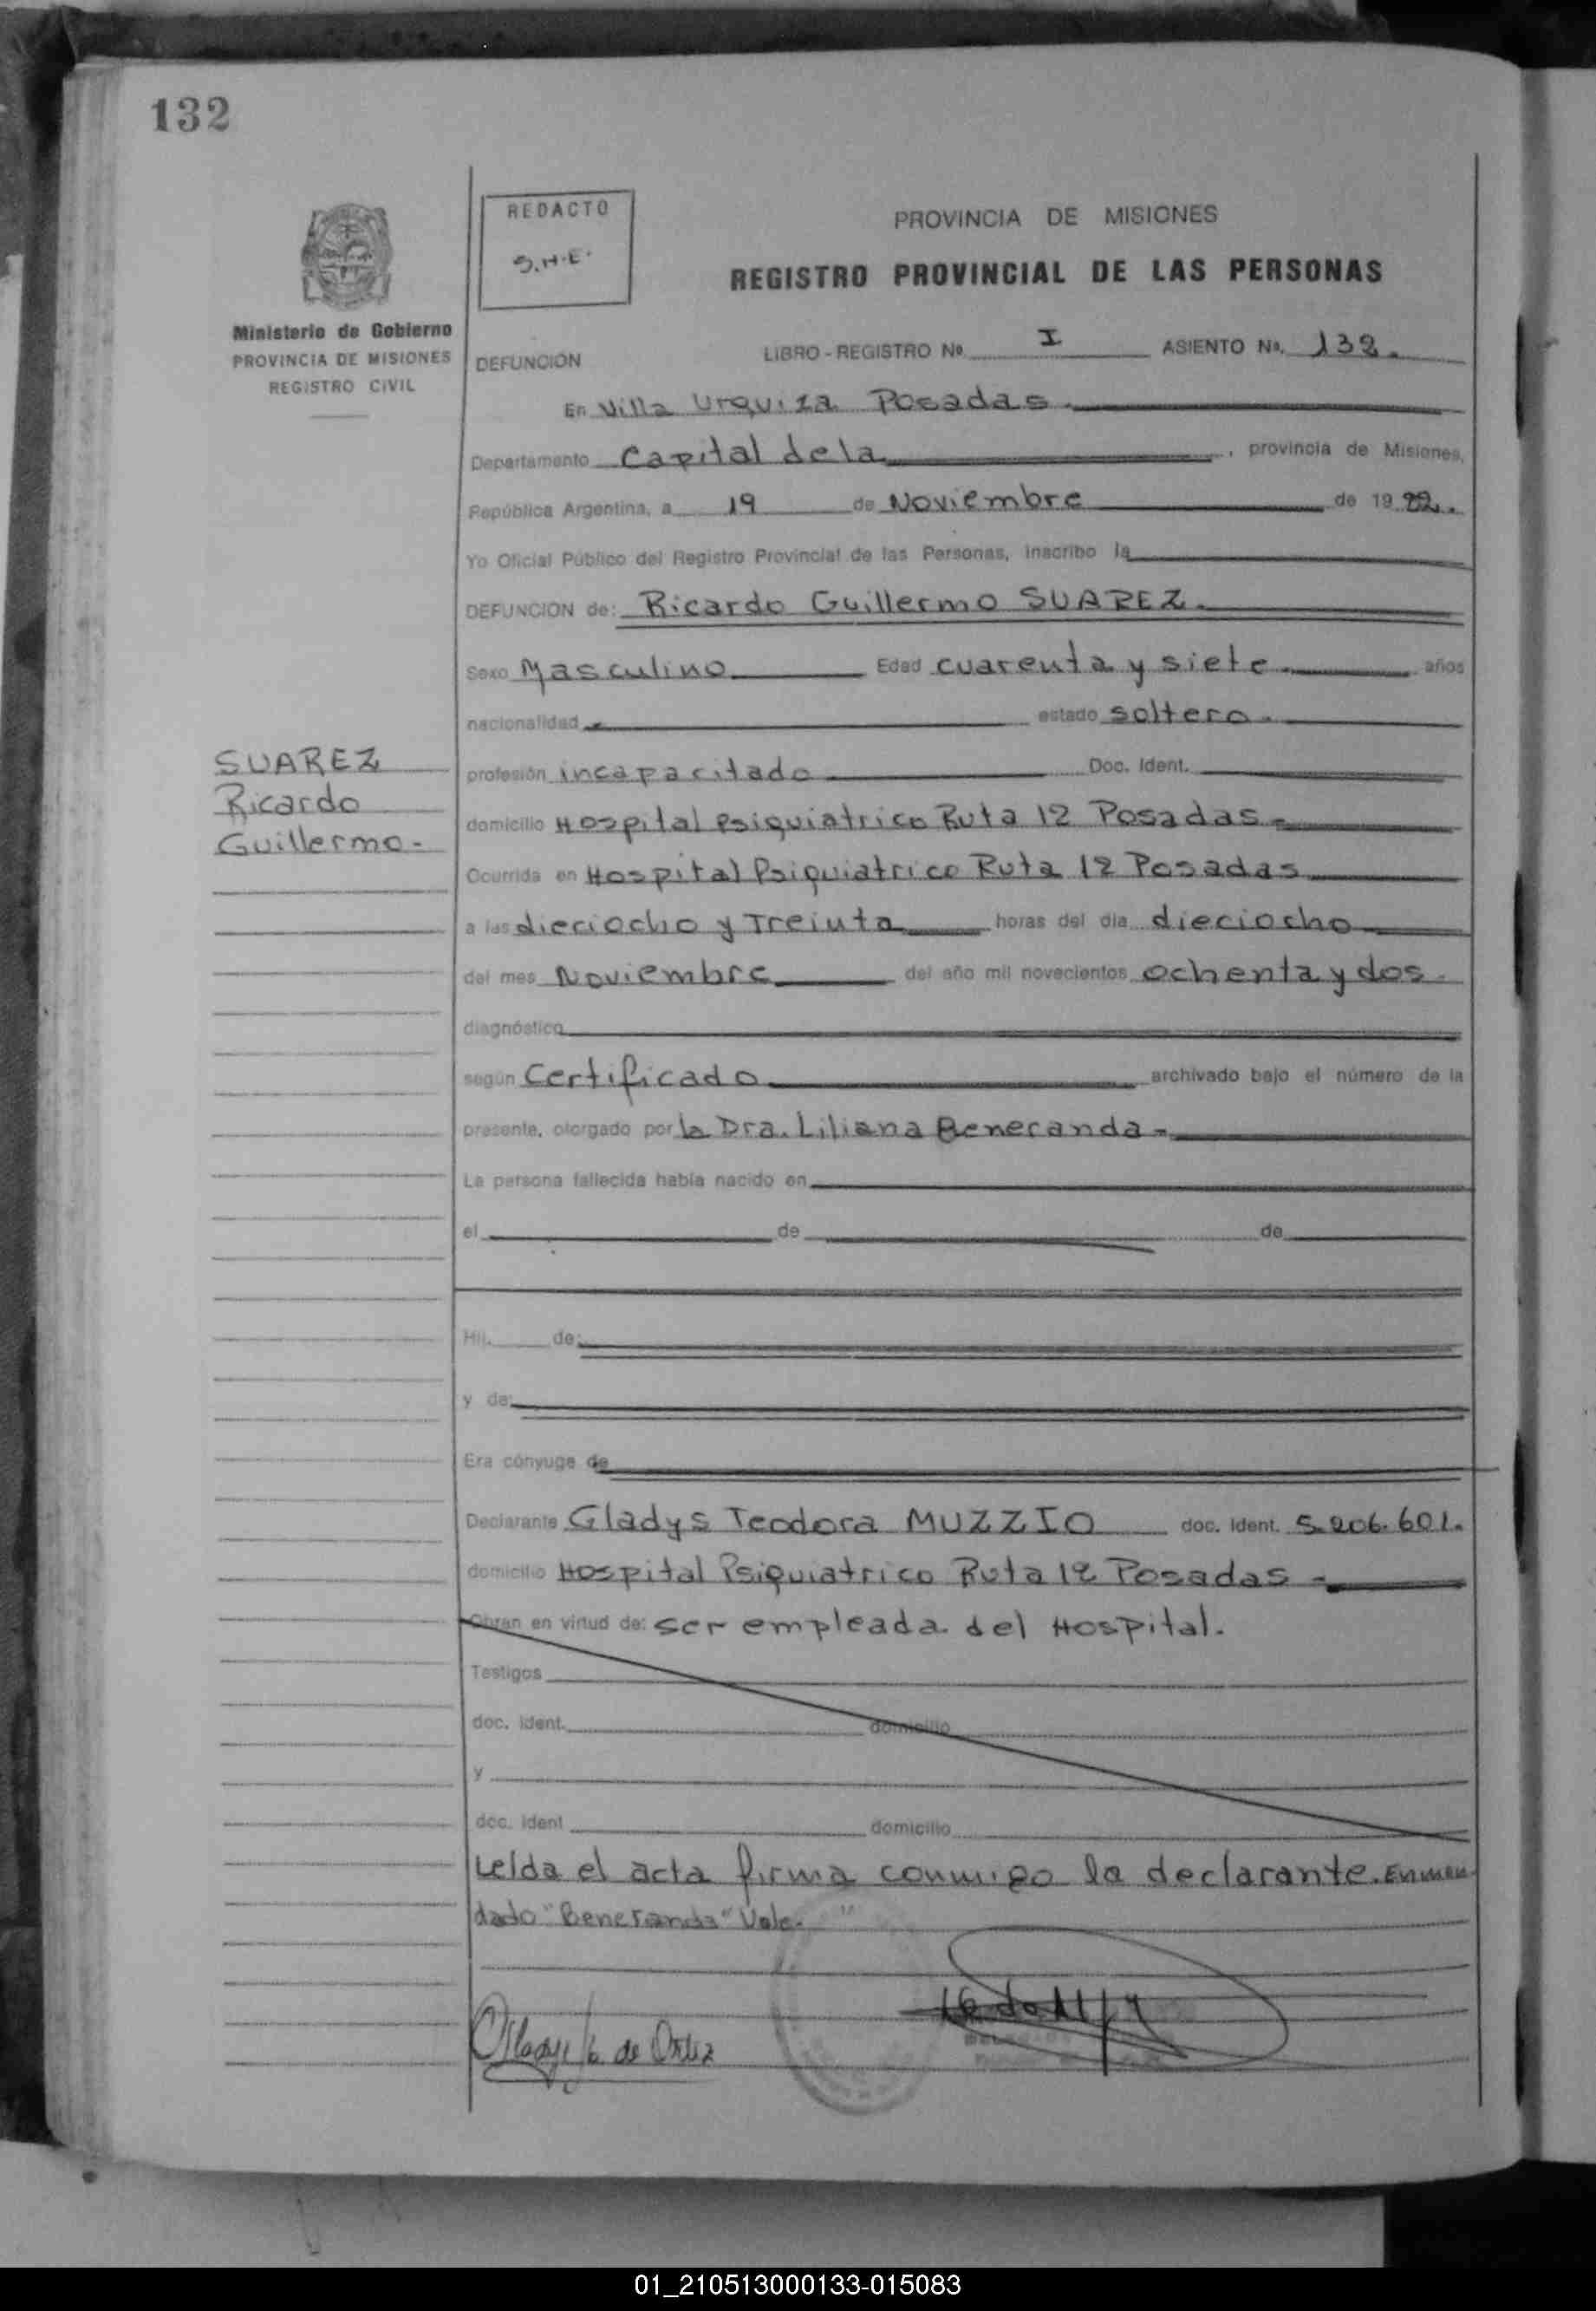 132
REDACTO
S.H.E.
PROVINCIA DE MISIONES
REGISTRO PROVINCIAL DE LAS PERSONAS
Ministerio de Gobierno
PROVINCIA DE MISIONES
REGISTRO CIVIL
DEFUNCIÓN LIBRO - REGISTRO No I ASIENTO No. 132.
En Villa Urquiza Posadas.
Departamento Capital de la , provincia de Misiones,
República Argentina, a 19 de Noviembre de 19 82.
Yo Oficial Público del Registro Provincial de las Personas, inscribo la
DEFUNCION de: Ricardo Guillermo SUAREZ.
Sexo Masculino Edad cuarenta y siete años
nacionalidad estado soltero.
SUAREZ
Ricardo
Guillermo.-
profesión incapacitado Doc. Ident.
domicilio Hospital Psiquiatrico Ruta 12 Posadas-
Ocurrida en Hospital Psiquiatrico Ruta 12 Posadas
a las dieciocho y Treinta horas del día dieciocho
del mes Noviembre del año mil novecientos ochenta y dos.
diagnóstico
según Certificado archivado bajo el número de la
presente, otorgado por la Dra. Liliana Beneranda-
La persona fallecida había nacido en
el de de
Hij. de:
y de:
Era cónyuge de
Declarante Gladys Teodora MUZZIO doc. ident. 5.206.601.
domicilio Hospital Psiquiatrico Ruta 12 Posadas-
Obran en virtud de: ser empleada del Hospital.
Testigos
doc. ident. domicilio
y
doc. ident domicilio
Leída el acta firma conmigo la declarante. Enmen-
dado "Beneranda" Vale.
Gladys de Ortiz
01_210513000133-015083